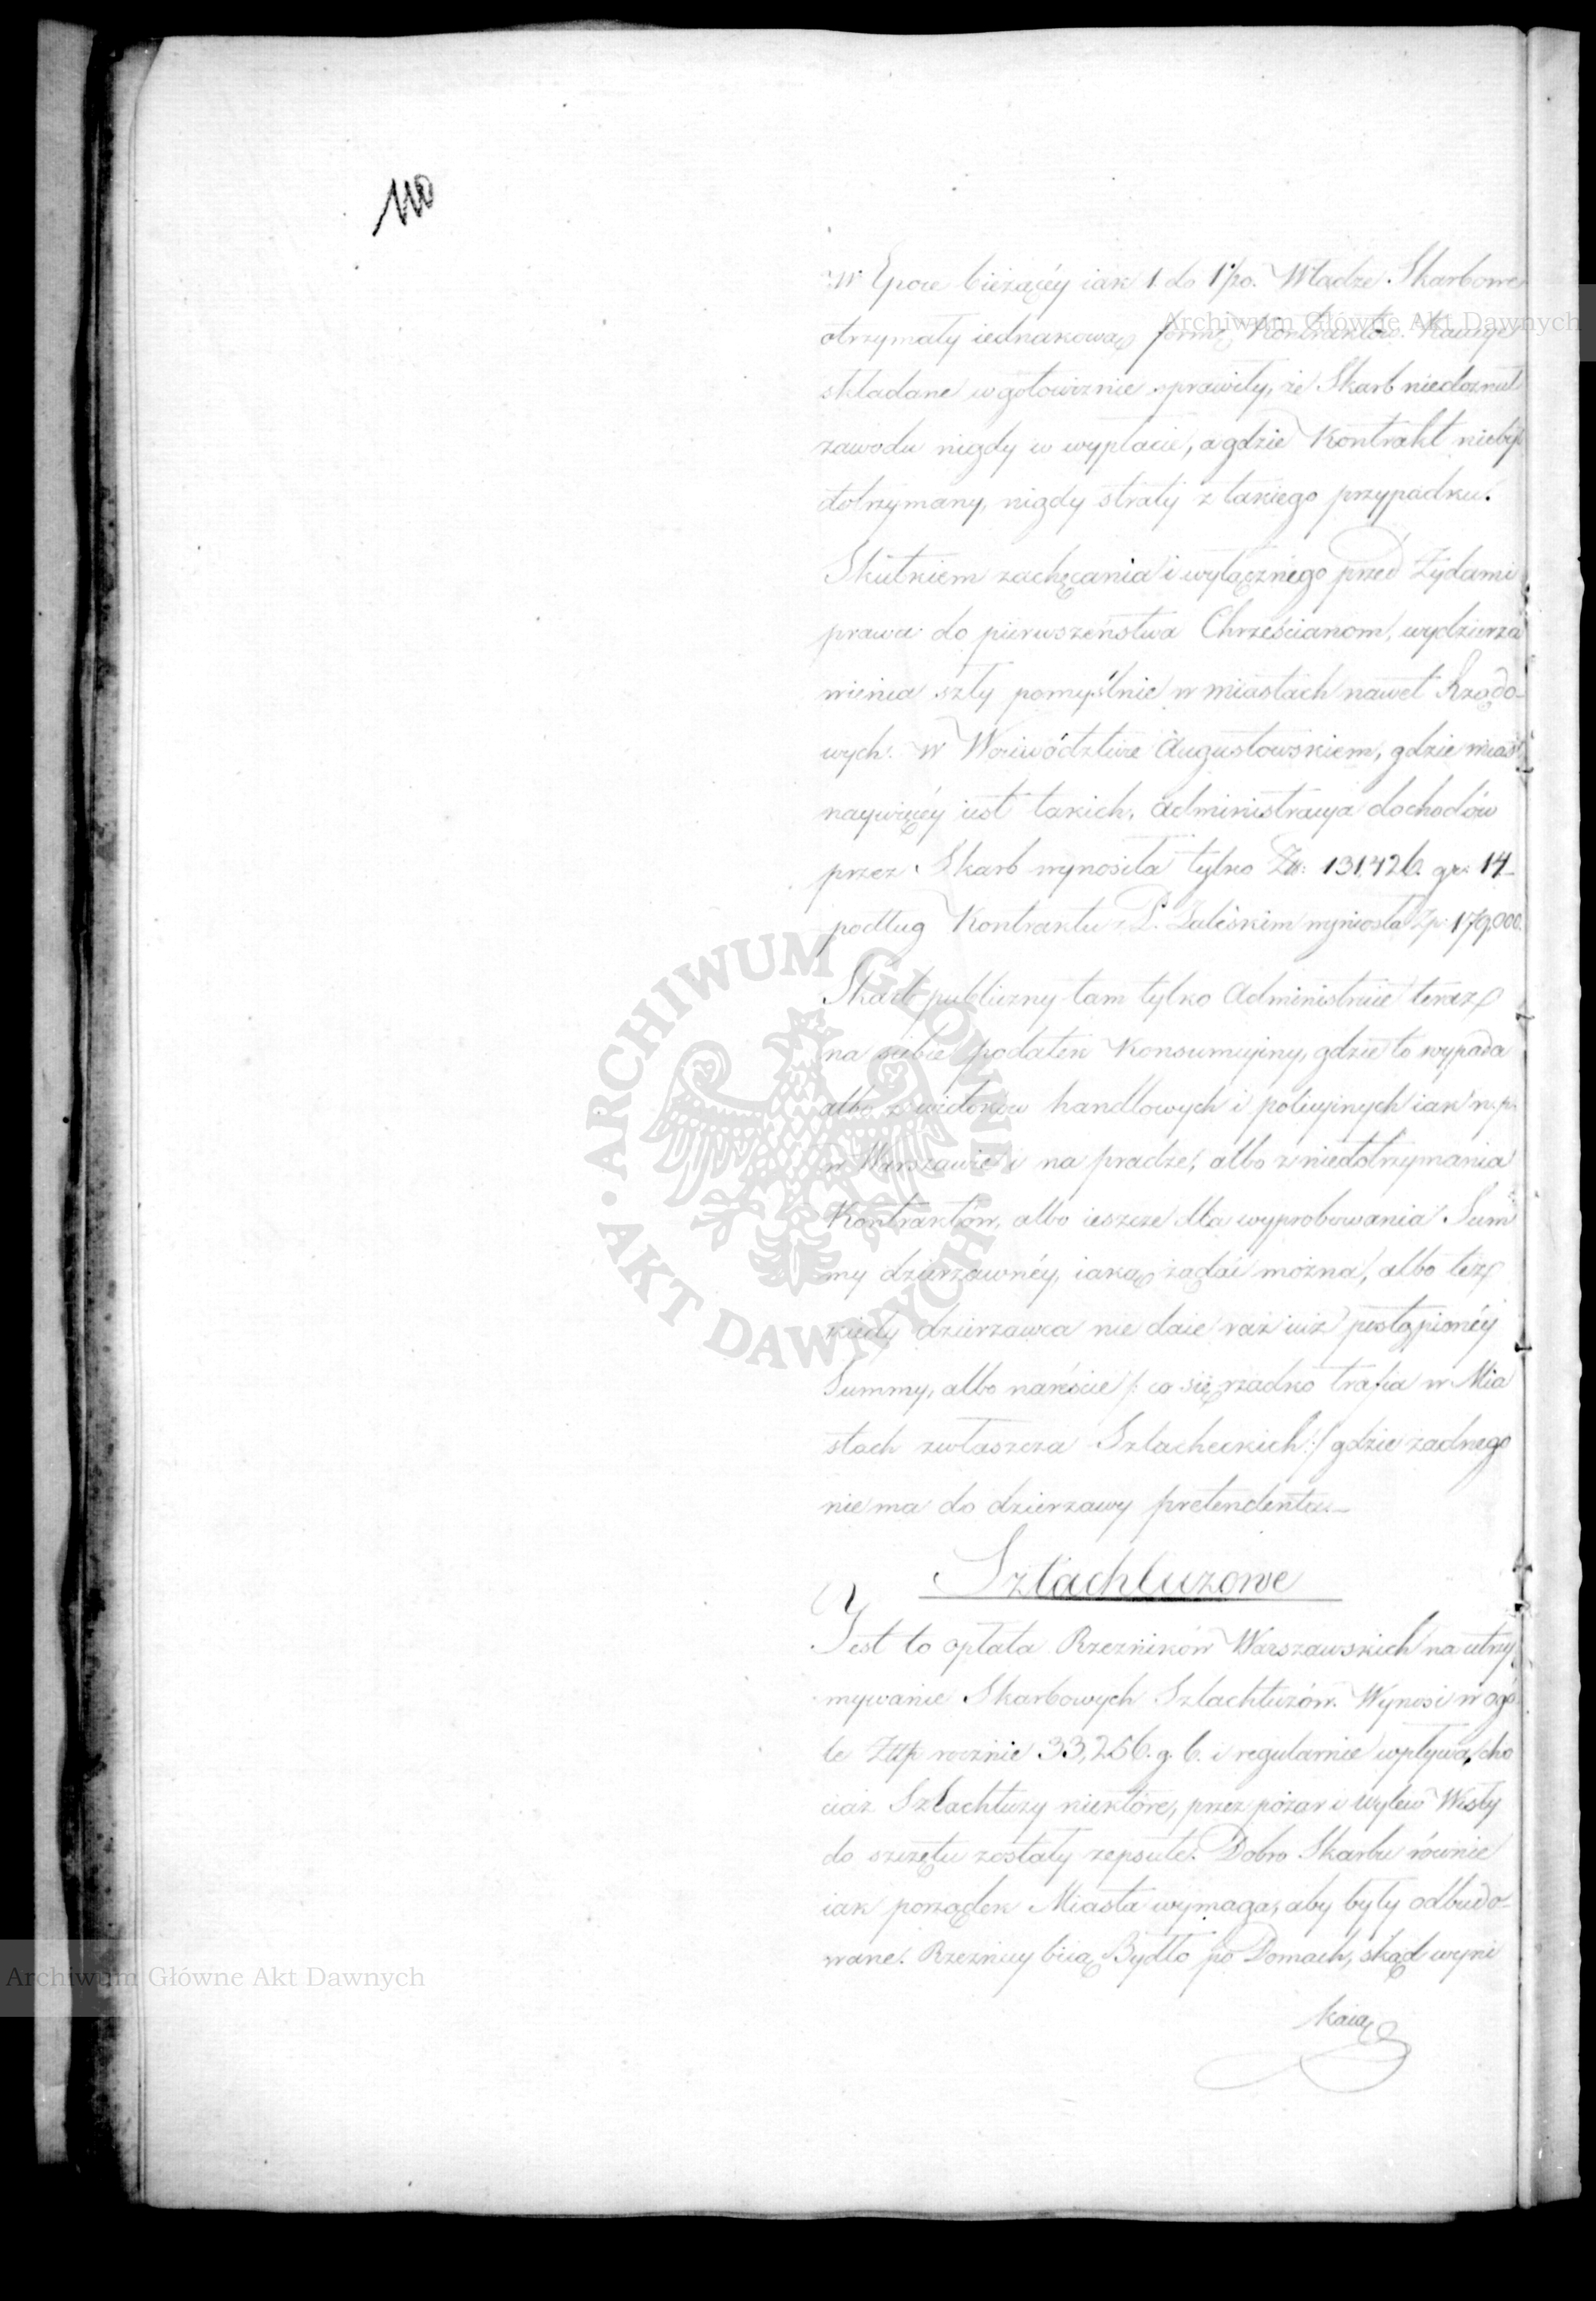 110
W Epoce bieżącéy iak 1. do 1po. Władze Skarbowe
otrzymały iednakową formę Kontraktów. Kaucye
składane w gotowiznie sprawiły, że Skarb niedoznał
zawodu nigdy w wypłacie, a gdzie Kontrakt niebył
dotrzymany, nigdy straty z takiego przypadku.
Skutkiem zachęcania i wyłącznego przed Żydami
prawa do pierwszeństwa Chrześcianom, wydzierża
wienia szły pomyślnie w miastach nawet Rządo-
wych. W Woiewództwie Augustowskiem, gdzie miast
naywięcéy iest takich, administracya dochodów
przez Skarb wynosiła tylko Zł: 131,426. gr: 14_
podług Kontraktu z P. Zaleskim wyniosła Zp: 179,000.
Skarb publiczny tam tylko Administruie teraz
na siebie podatek Konsumcyiny, gdzie to wypada
albo z widoków handlowych i policyinych iak n.p.
w Warszawie i na pradze, albo z niedotrzymania
Kontraktów, albo ieszcze dla wyprobowania Sum
my dzierżawnéy, iaką żądać można, albo też
kiedy dzierżawca nie daie raz iuż postąpionéy
Summy, albo nareście /: co się rzadko trafia w Mia
stach zwłaszcza Szlacheckich :/ gdzie żadnego
nie ma do dzierżawy pretendenta._
Szlachtuzowe
Jest to opłata Rzeźników Warszawskich na utrzy
mywanie Skarbowych Szlachtuzów. Wynosi w ogó
le Złp rocznie 33,256. g. 6. i regularnie wpływa, cho
ciaż Szlachtuzy niektóre, przez pożar i wylew Wisły
do szczętu zostały zepsute. Dobro Skarbu równie
iak porządek Miasta wymaga, aby były odbudo-
wane. Rzeźnicy biią Bydło po Domach, skąd wyni
kaią
Archiwum Główne Akt Dawnych
ARCHIWUM GŁÓWNE AKT DAWNYCH
Archiwum Główne Akt Dawnych